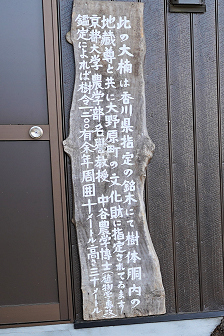 此の大楠は香川県指定の銘木にて樹体胴内の
地蔵尊と共に大野原町の文化財に指定されてゐます
京都大学農学部名誉教授 中谷農学博士(植物学専攻)
鑑定によれば樹令一二〇〇有余年周囲十一メートル高さ三十メートル